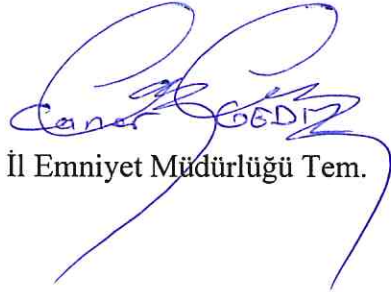 Caner GEDİZ
İl Emniyet Müdürlüğü Tem.